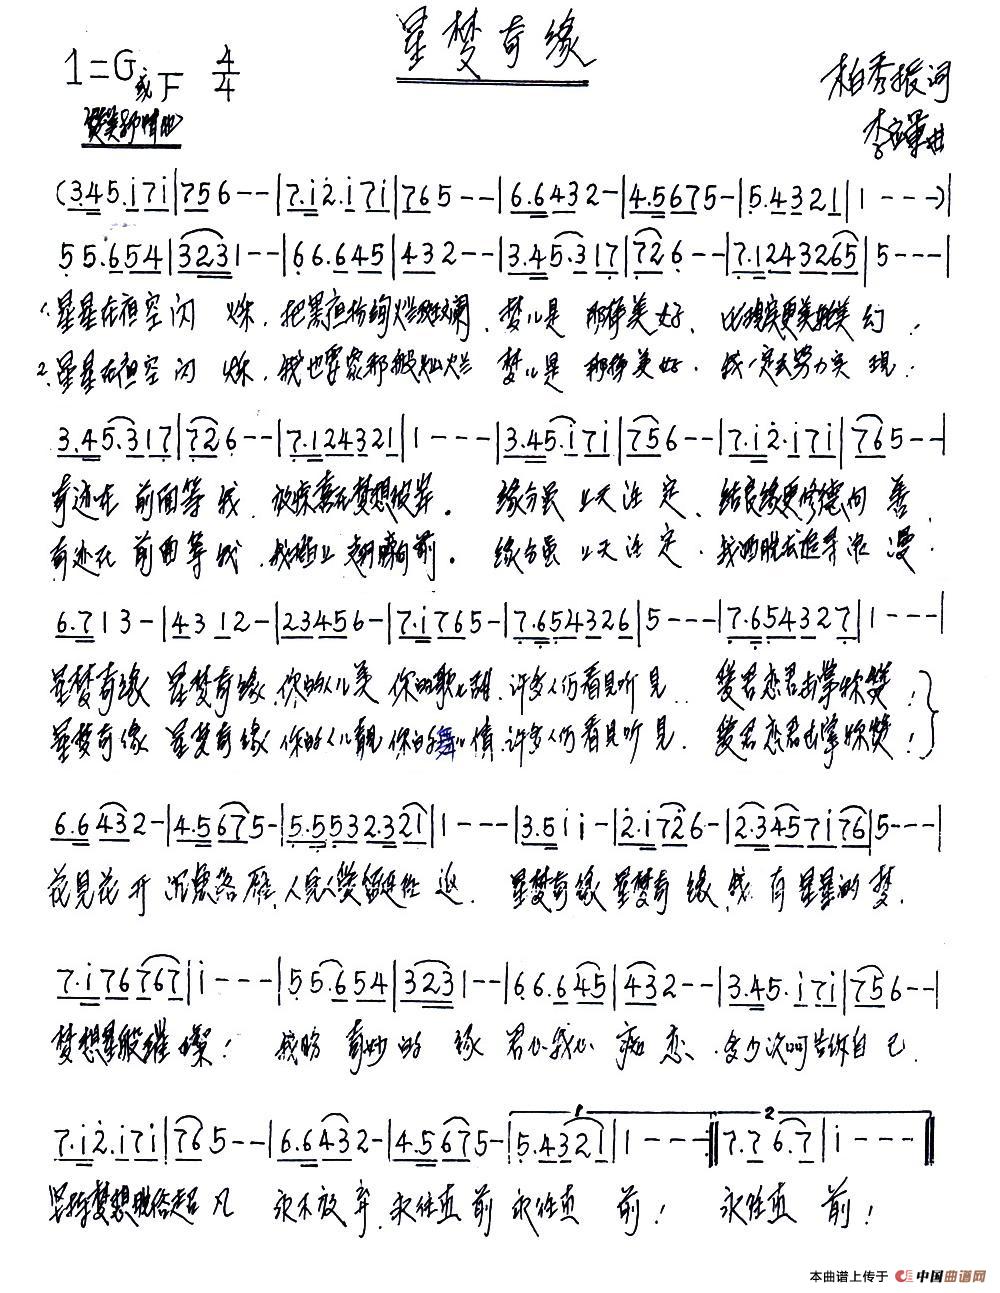 星梦奇缘
1=G或F 4/4
柏秀振词
李 曲
(3.45.i7i|756--|7.i2.i7i|765---|6.6432-|4.5675-|5.4321|1---)|
55.654|3231--|66.645|432--|3.45.317|726--|7.1243265|5---|
1.星星在夜空闪 烁,把黑夜 绚烂 斓,梦儿是 那样美好,比现实更美 美幻!
2.星星在夜空闪 烁,我也要像那般灿烂 梦儿是 那样美好,我一定去努力实 现!
3.45.317|726--|7.124321|1---|3.45.i7i|756--|7.i2.i7i|765--|
奇迹在 前面等 我,放 在梦想彼岸。 缘分虽 上天注 定,结良缘更修德向 善,
奇迹在 前面等 我,我踏上 向前。 缘分虽 上天注 定,我 去追寻浪 漫.
6.713-|4312-|23456-|7.i765-|7.654326|5---|7.654327|1---|
星梦奇缘 星梦奇缘,你的人儿美 你的歌儿甜,许多人仍看见听见. 爱君恋君 掌你赞!
星梦奇缘 星梦奇缘 你的人儿靓 你的舞儿倩,许多人仍看见听见. 爱君恋君 掌你赞!
6.6432-|4.5675-|5.5532.321|1---|3.51i-|2.i726-|2.3457i76|5---|
花见花开 沉鱼落雁,人见人爱留连往返. 星梦奇缘 星梦奇 缘,我 有星星的梦,
7.i76767|i---|55.654|3231--|66.645|432--|3.45.i7i|756--|
梦想星般璀璨! 我盼 奇妙的 缘 君心我心 痴恋,多少次 告你自己,
7.i2.i7i|765--|6.6432-|4.5675-|5.4321|1---:|7.76.7|i---|
坚持梦想脱俗超凡 永不放弃,永往直前 永往直 前! 永往直 前!
本曲谱上传于 中国曲谱网